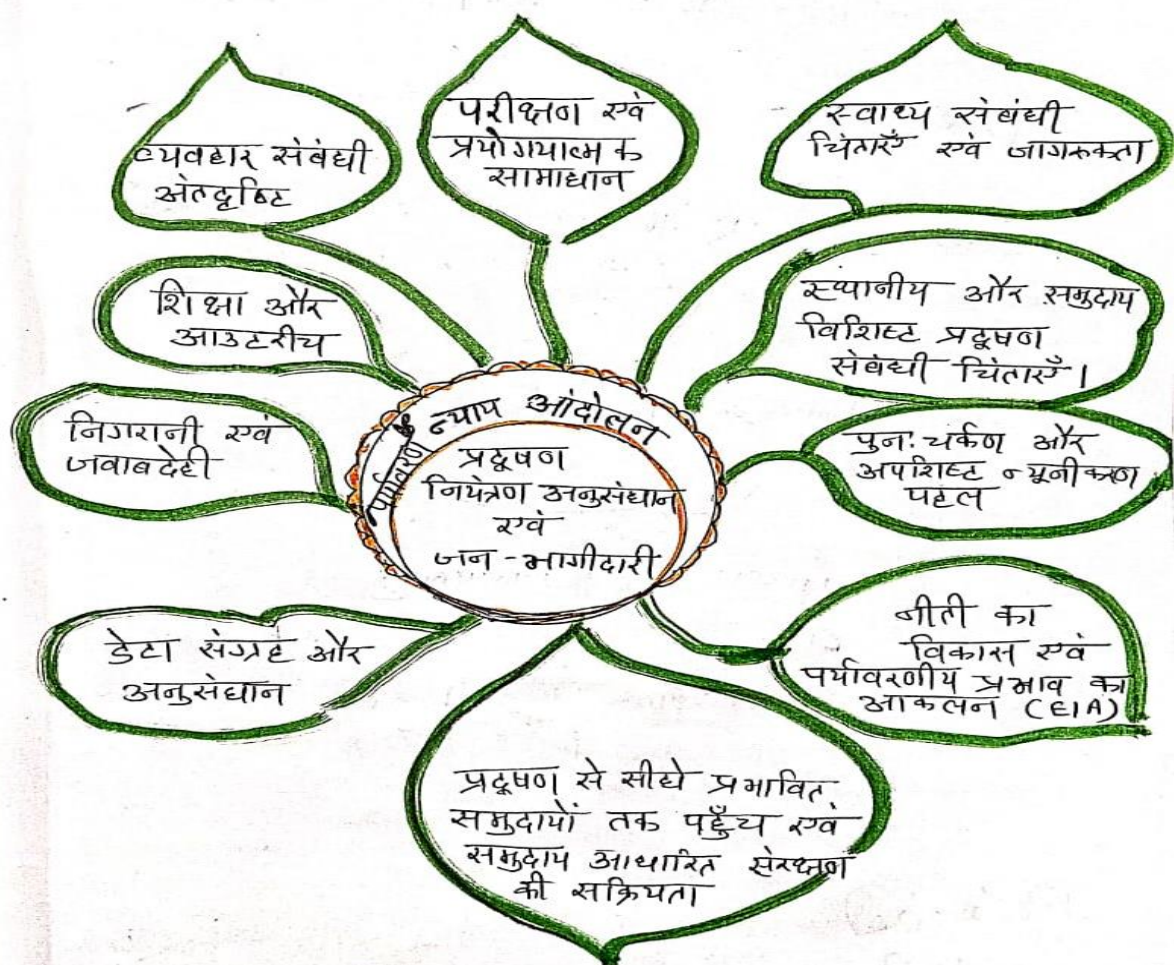 व्यवहार संबंधी
अंतदृष्टि
परीक्षण एवं
प्रयोगयात्म क
सामाधान
स्वाथ्य संबंधी
चिंताएँ एवं जागरुकता
शिक्षा और
आउटरीच
स्थानीय और समुदाय
विशिष्ट प्रदूषण
संबंधी चिंताएँ।
निगरानी एवं
जवाबदेही
पर्यावरण न्याय आंदोलन
प्रदूषण
नियंत्रण अनुसंधान
एवं
जन-भागीदारी
पुनः चर्कण और
अपशिष्ट न्यूनीकरण
पहल
डेटा संग्रह और
अनुसंधान
नीती का
विकास एवं
पर्यावरणीय प्रभाव का
आकलन (EIA)
प्रदूषण से सीधे प्रभावित
समुदायों तक पहुँच एवं
समुदाय आधारित संरक्षण
की सक्रियता